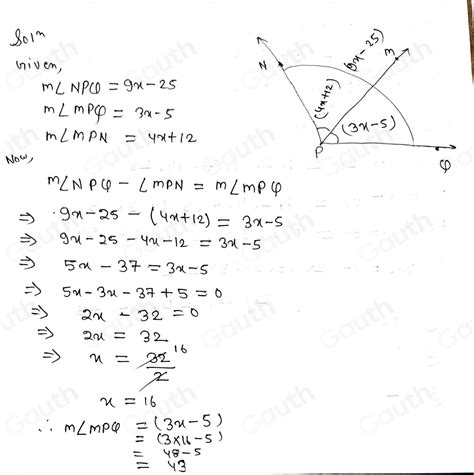 Solⁿ
Given,
m∠NPQ = 9x-25
m∠MPQ = 3x-5
m∠MPN = 4x+12
Now,
m∠NPQ - ∠MPN = m∠MPQ
⇒ 9x-25 - (4x+12) = 3x-5
⇒ 9x-25-4x-12 = 3x-5
⇒ 5x-37 = 3x-5
⇒ 5x-3x-37+5 = 0
⇒ 2x-32 = 0
⇒ 2x = 32
⇒ x = 32/2 16
x = 16
∴ m∠MPQ = (3x-5)
= (3x16-5)
= 48-5
= 43
N
(9x-25)
M
(4x+12)
(3x-5)
P
Q
Gauth